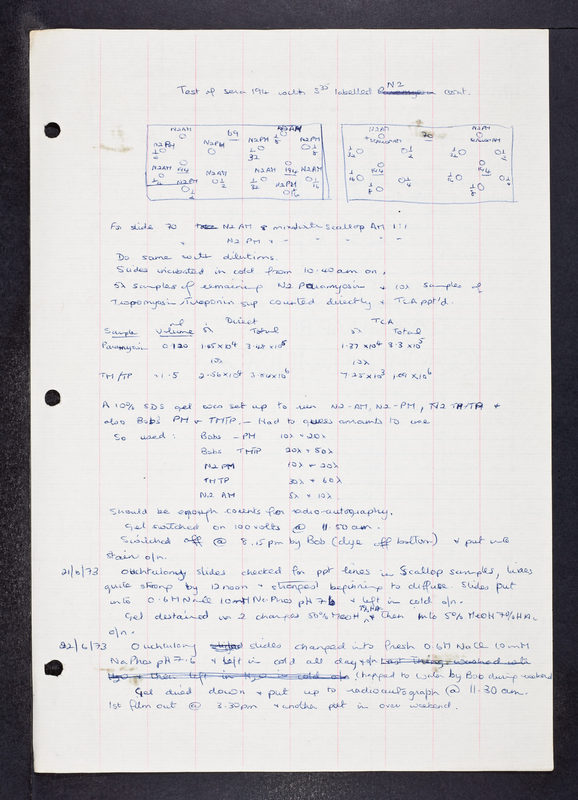 Test of sera 194 with S35 labelled N2 cont.
N2AM 69 N2AM
N2PM N2PM N2PM N2PM
1/2 1/8 1/32 1/8
N2AM 194 N2AM N2AM 194 N2AM
N2PM 1/2 1/32 N2PM 1/16
N2AM 70 N2PM
+ scallop AM
1/32 1/2 1/32 1/2
194 194
1/16 1/4 1/16 1/4
1/8 1/8
For slide 70 N2AM & mixed with Scallop AM 1:1
" N2 PM " " " " "
Do same with dilutions.
Slides incubated in cold from 10.40 am on.
5λ samples of remaining N2 Paramyosin + 10λ samples of
Tropomyosin/Troponin sup counted directly & TCA ppt'd.
Direct TCA
Sample Volume 5λ Total 5λ Total
Paramyosin 0.120 3.48 x 10⁵ 1.37 x 10⁴ 3.3 x 10⁵
10λ 10λ
TM/TP ~1.5 2.56 x 10⁴ 7.25 x 10³ 1.09 x 10⁶
A 10% SDS gel was set up to run N2-AM, N2-PM, N2 TM/TP &
also Bob's PM & TMTP. - Had to guess amounts to use
So used : Bobs - PM 10λ + 20λ
Bobs TMTP 20λ + 50λ
N2 PM 10λ + 20λ
TMTP 30λ + 60λ
N2 AM 5λ + 10λ
Should be enough counts for radio-autography.
Gel switched on 100 volts @ 11.50 am.
Switched off @ 8.15pm by Bob (dye off bottom) & put into
stain o/n.
21/6/73 Ouchterlony slides checked for ppt lines in Scallop samples, lines
quite strong by 12 noon & strongest beginning to diffuse. Slides put
into 0.6M NaCl 10mM Na Phos pH 7.6 & left in cold o/n.
Gel destained in 2 changes 50% MeOH, 7% HA & then into 5% MeOH 7% HAc
o/n.
22/6/73 Ouchterlony slides changed into fresh 0.6M NaCl 10mM
Na Phos pH 7.6 & left in cold all day & o/n Last thing washed with
H2O & then left in H2O in cold o/n (changed to water by Bob during weekend
Gel dried down & put up to radioautograph @ 11-30 am.
1st film out @ 3.30pm & another put in over weekend.